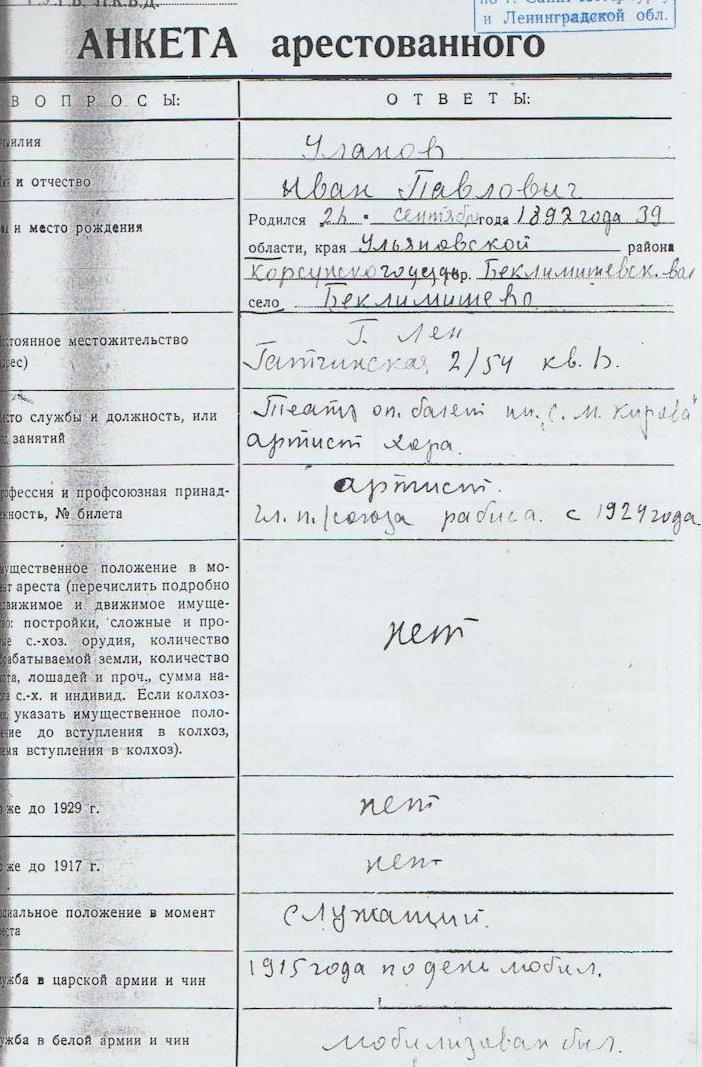 по г. Санкт-Петербургу
и Ленинградской обл.
АНКЕТА арестованного
ВОПРОСЫ:
ОТВЕТЫ:
Уланов
и отчество
Иван Павлович
и место рождения
Родился 24 сентября года 1892 года 39
области, края Ульяновской района
Корсунского уезда Беклимишевск. вол
село Беклимишево
местожительство
Г. Лен
Гатчинская 2/54 кв. 6.
службы и должность, или
занятий
Театр оп. балет им. С. М. Кирова"
артист хора.
и профсоюзная принад-
№ билета
артист.
чл. п./союза рабиса. с 1924 года
положение в мо-
ареста (перечислить подробно
и движимое имуще-
постройки, сложные и про-
с.-хоз. орудия, количество
земли, количество
лошадей и проч., сумма на-
с.-х. и индивид. Если колхоз-
указать имущественное поло-
до вступления в колхоз,
вступления в колхоз).
нет
же до 1929 г.
нет
же до 1917 г.
нет
положение в момент
служащий.
в царской армии и чин
1915 года по день мобил.
в белой армии и чин
мобилизован был.